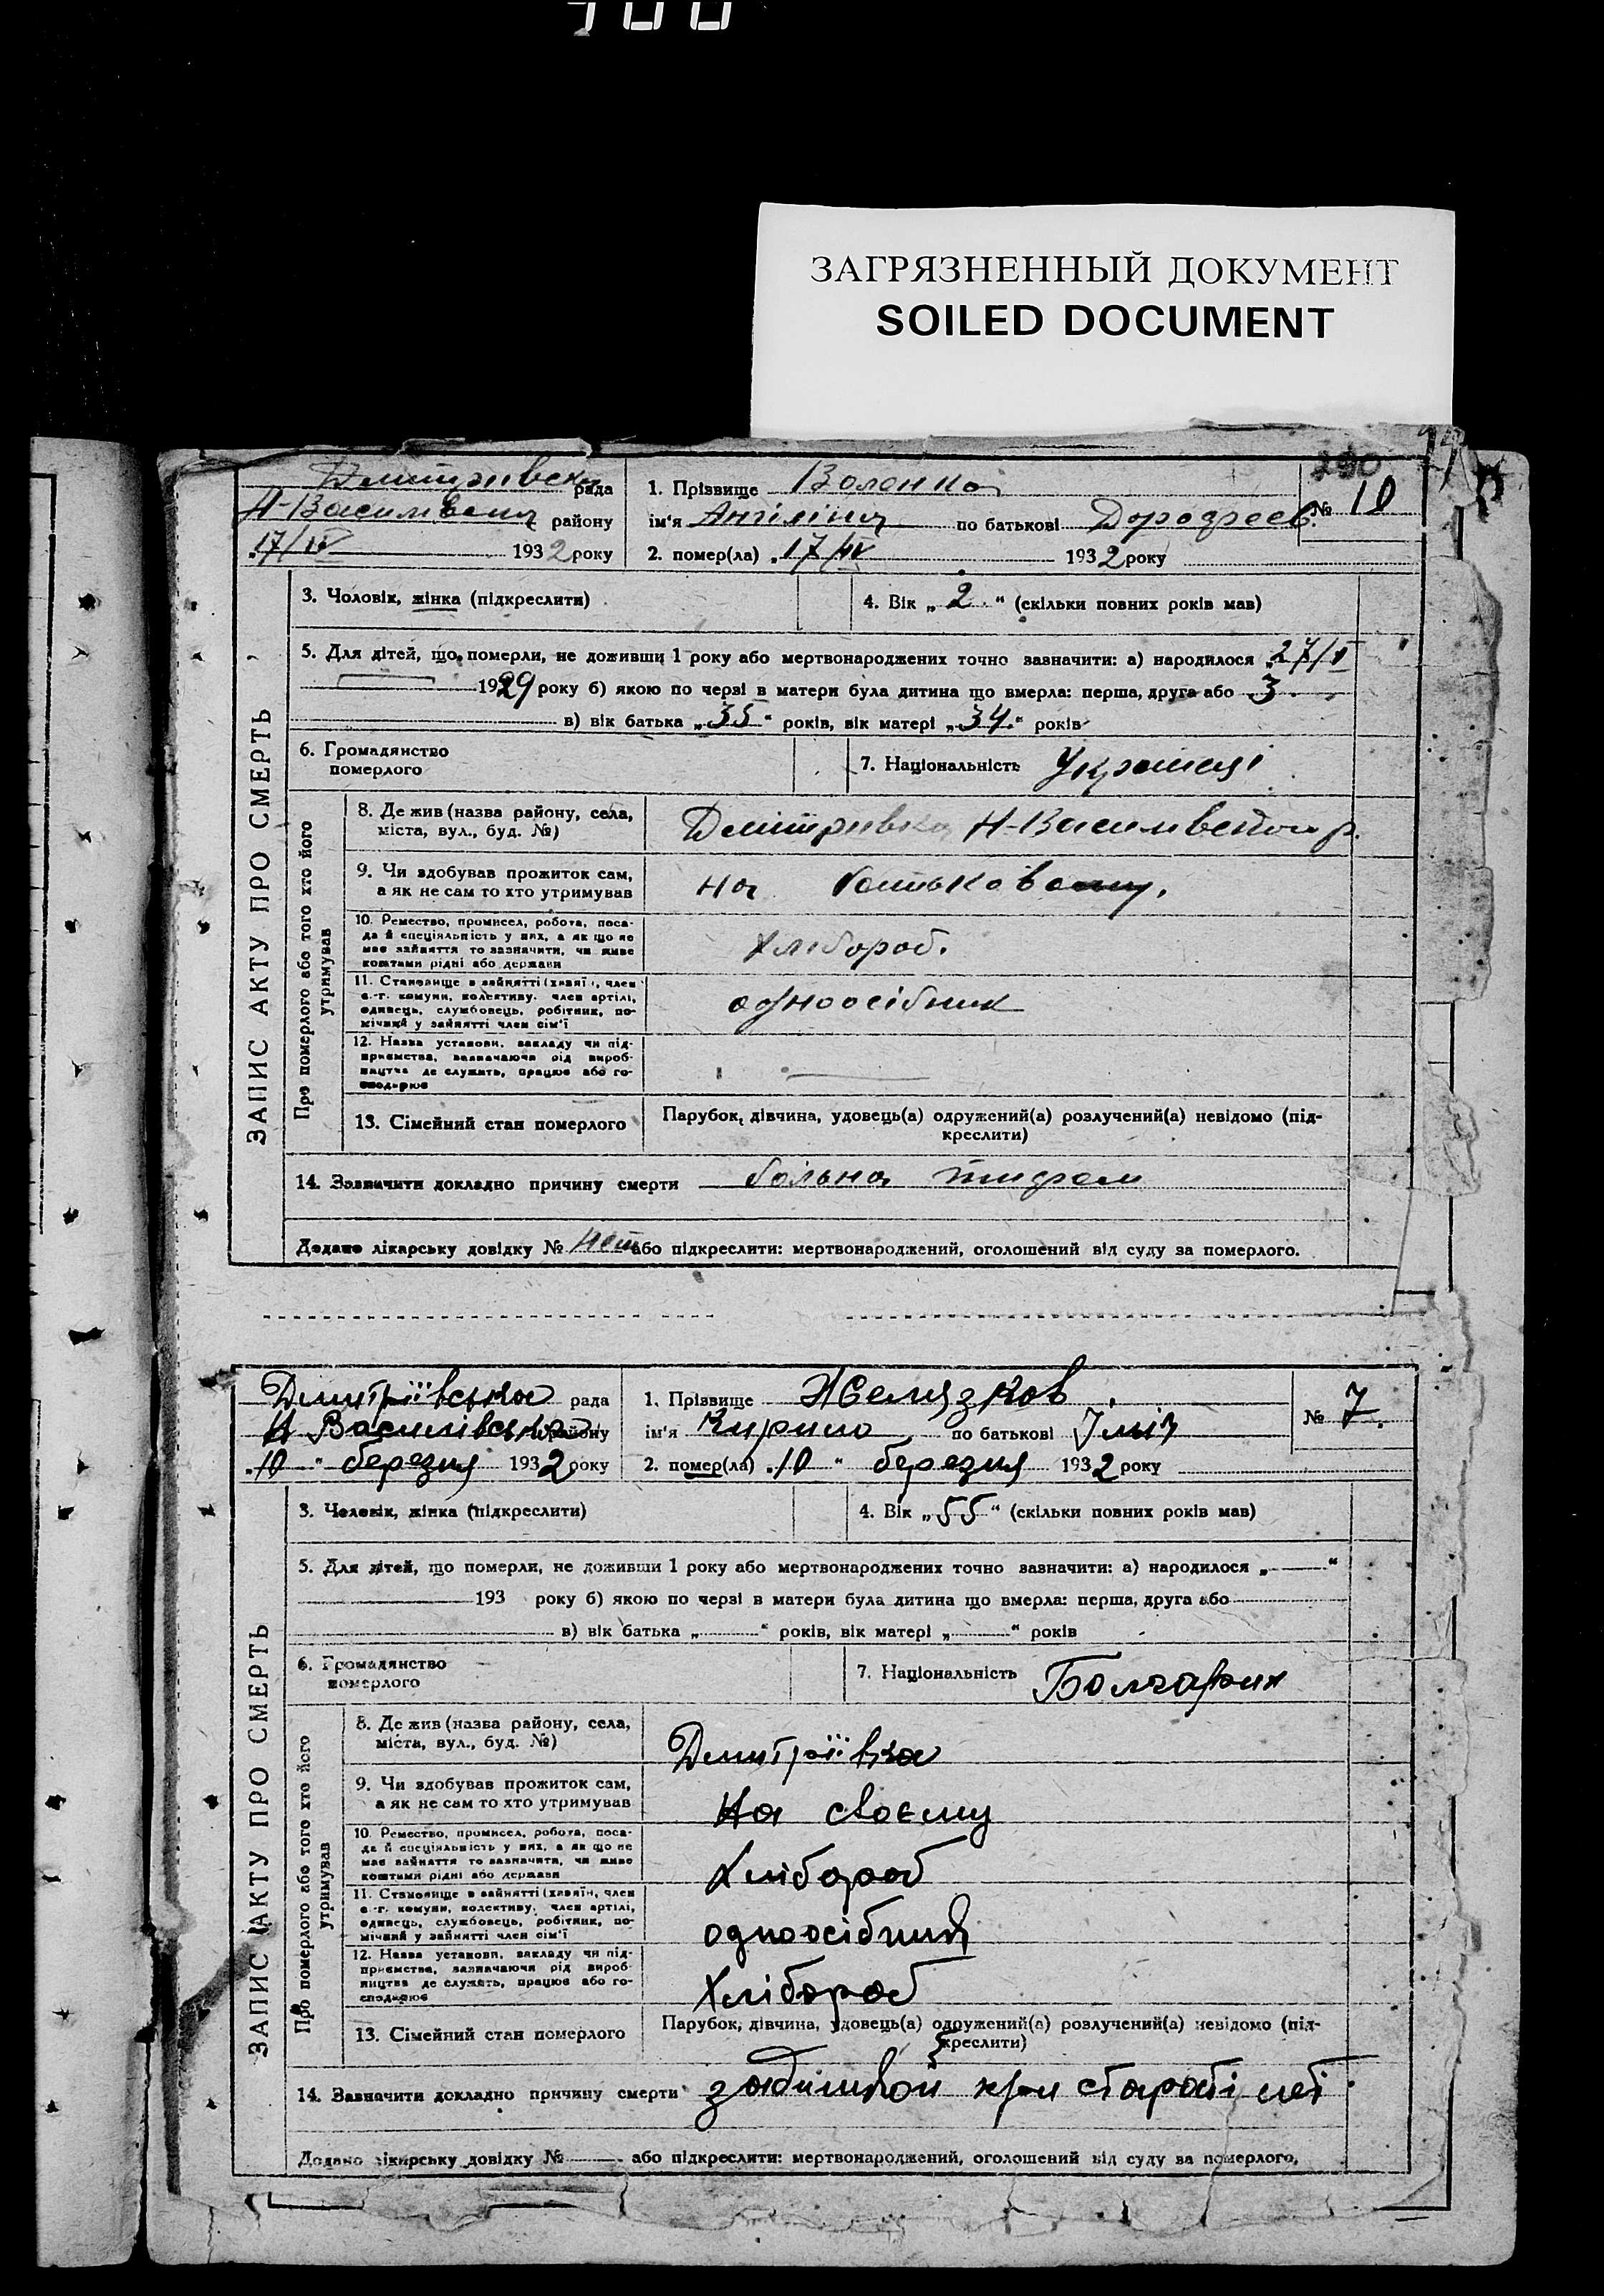 ЗАГРЯЗНЕННЫЙ ДОКУМЕНТ
SOILED DOCUMENT
рада
Н-Василівська району
17/IV 1932 року
1. Прізвище
ім'я Ангіліна по батькові
№ 10
2. помер(ла) „17/IV 1932 року
ЗАПИС АКТУ ПРО СМЕРТЬ
3. Чоловік, жінка (підкреслити)
4. Вік „2“ (скільки повних років мав)
5. Для дітей, що померли, не доживши 1 року або мертвонароджених точно зазначити: а) народилося „27/V
1929 року б) якою по черзі в матери була дитина що вмерла: перша, друга або 3
в) вік батька „35“ років, вік матері „34“ років
6. Громадянство
померлого
7. Національність
Про померлого або того хто його
утримував
8. Де жив (назва району, села,
міста, вул., буд. №)
9. Чи здобував прожиток сам,
а як не сам то хто утримував
на
10. Ремество, промисел, робота, поса-
да й спеціяльність у них, а як що не
має зайняття то зазначити, чи живе
коштами рідні або держави
хлібороб.
11. Становище в зайнятті (хазяїн, член
с.-г. комуни, колективу, член артілі,
одинець, службовець, робітник, по-
мічний у зайнятті член сім'ї
одноосібник
12. Назва установи, закладу чи під-
приємства, зазначаючи рід вироб-
ництва де служить, працює або го-
сподарює
13. Сімейний стан померлого
Парубок, дівчина, удовець(а) одружений(а) розлучений(а) невідомо (під-
креслити)
14. Зазначити докладно причину смерти больна тифом
Додано лікарську довідку № нет або підкреслити: мертвонароджений, оголошений від суду за померлого.
Дмитріївська рада
Н Василівська району
„10“ березня 1932 року
1. Прізвище Желязков
ім'я Кирило по батькові Ілліч
№ 7.
2. помер(ла) „10“ березня 1932 року
ЗАПИС АКТУ ПРО СМЕРТЬ
3. Чоловік, жінка (підкреслити)
4. Вік „55“ (скільки повних років мав)
5. Для дітей, що померли, не доживши 1 року або мертвонароджених точно зазначити: а) народилося „ “
193 року б) якою по черзі в матери була дитина що вмерла: перша, друга або
в) вік батька „ “ років, вік матері „ “ років
6. Громадянство
померлого
7. Національність Болгарин
Про померлого або того хто його
утримував
8. Де жив (назва району, села,
міста, вул., буд. №)
Дмитріївка
9. Чи здобував прожиток сам,
а як не сам то хто утримував
на своєму
10. Ремество, промисел, робота, поса-
да й спеціяльність у них, а як що не
має зайняття то зазначити, чи живе
коштами рідні або держави
хлібороб
11. Становище в зайнятті (хазяїн, член
с.-г. комуни, колективу, член артілі,
одинець, службовець, робітник, по-
мічний у зайнятті член сім'ї
одноосібник
12. Назва установи, закладу чи під-
приємства, зазначаючи рід вироб-
ництва де служить, працює або го-
сподарює
хлібороб
13. Сімейний стан померлого
Парубок, дівчина, удовець(а) одружений(а) розлучений(а) невідомо (під-
креслити)
14. Зазначити докладно причину смерти при старості
Додано лікарську довідку № або підкреслити: мертвонароджений, оголошений від суду за померлого,